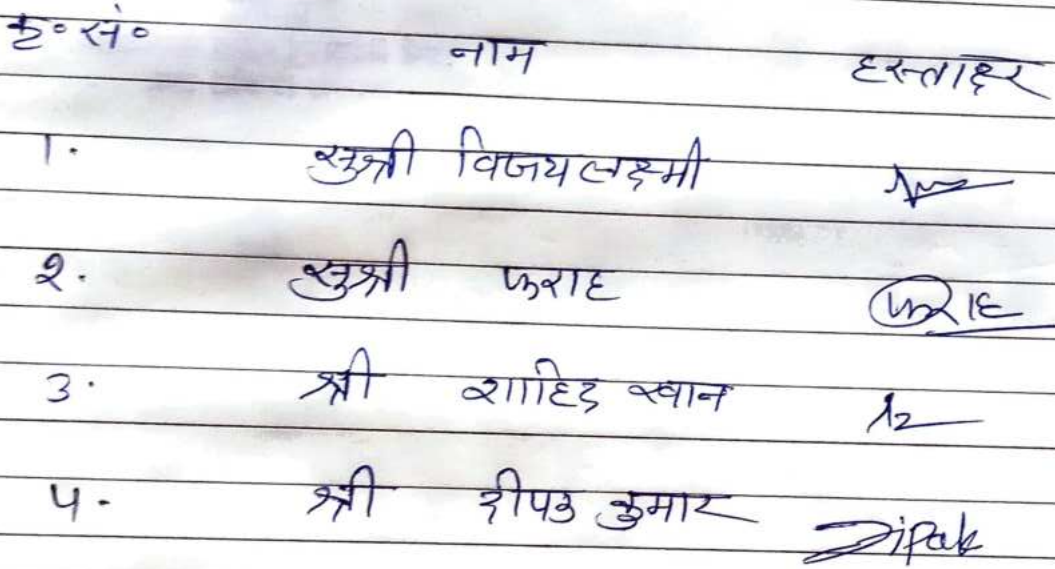 क्र०सं० नाम हस्ताक्षर
1. सुश्री विजयलक्ष्मी
२. सुश्री फराह फराह
3. श्री शाहिद खान
4. श्री दीपक कुमार Dipak